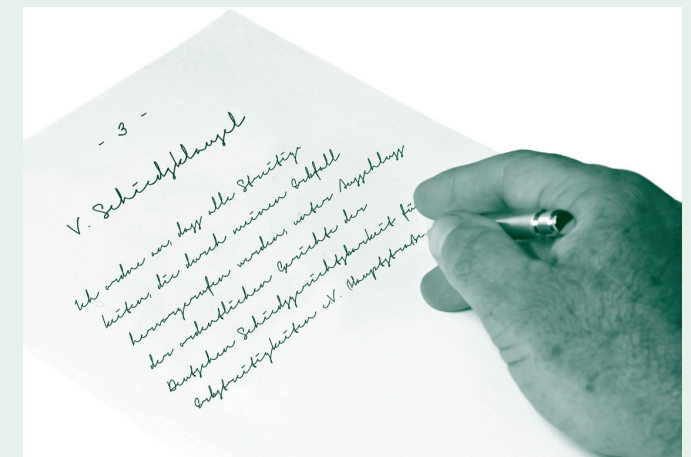 - 3 -
V. Schiedsklausel
Ich ordne an, dass alle Streitig-
keiten, die durch meinen Erbfall
hervorgerufen werden, unter Ausschluss
der ordentlichen Gerichte der
Deutschen Schiedsgerichtsbarkeit für
Erbstreitigkeiten e.V. Hauptstraße